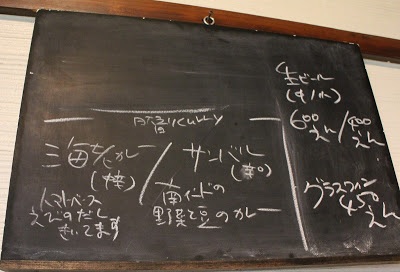 月替りcurry
海老カレー
(辛)
トマトベース
えびのだし
きいてます
サンバル
(辛0)
南インドの
野菜と豆のカレー
生ビール
(中/小)
600えん/400えん
グラスワイン
450えん